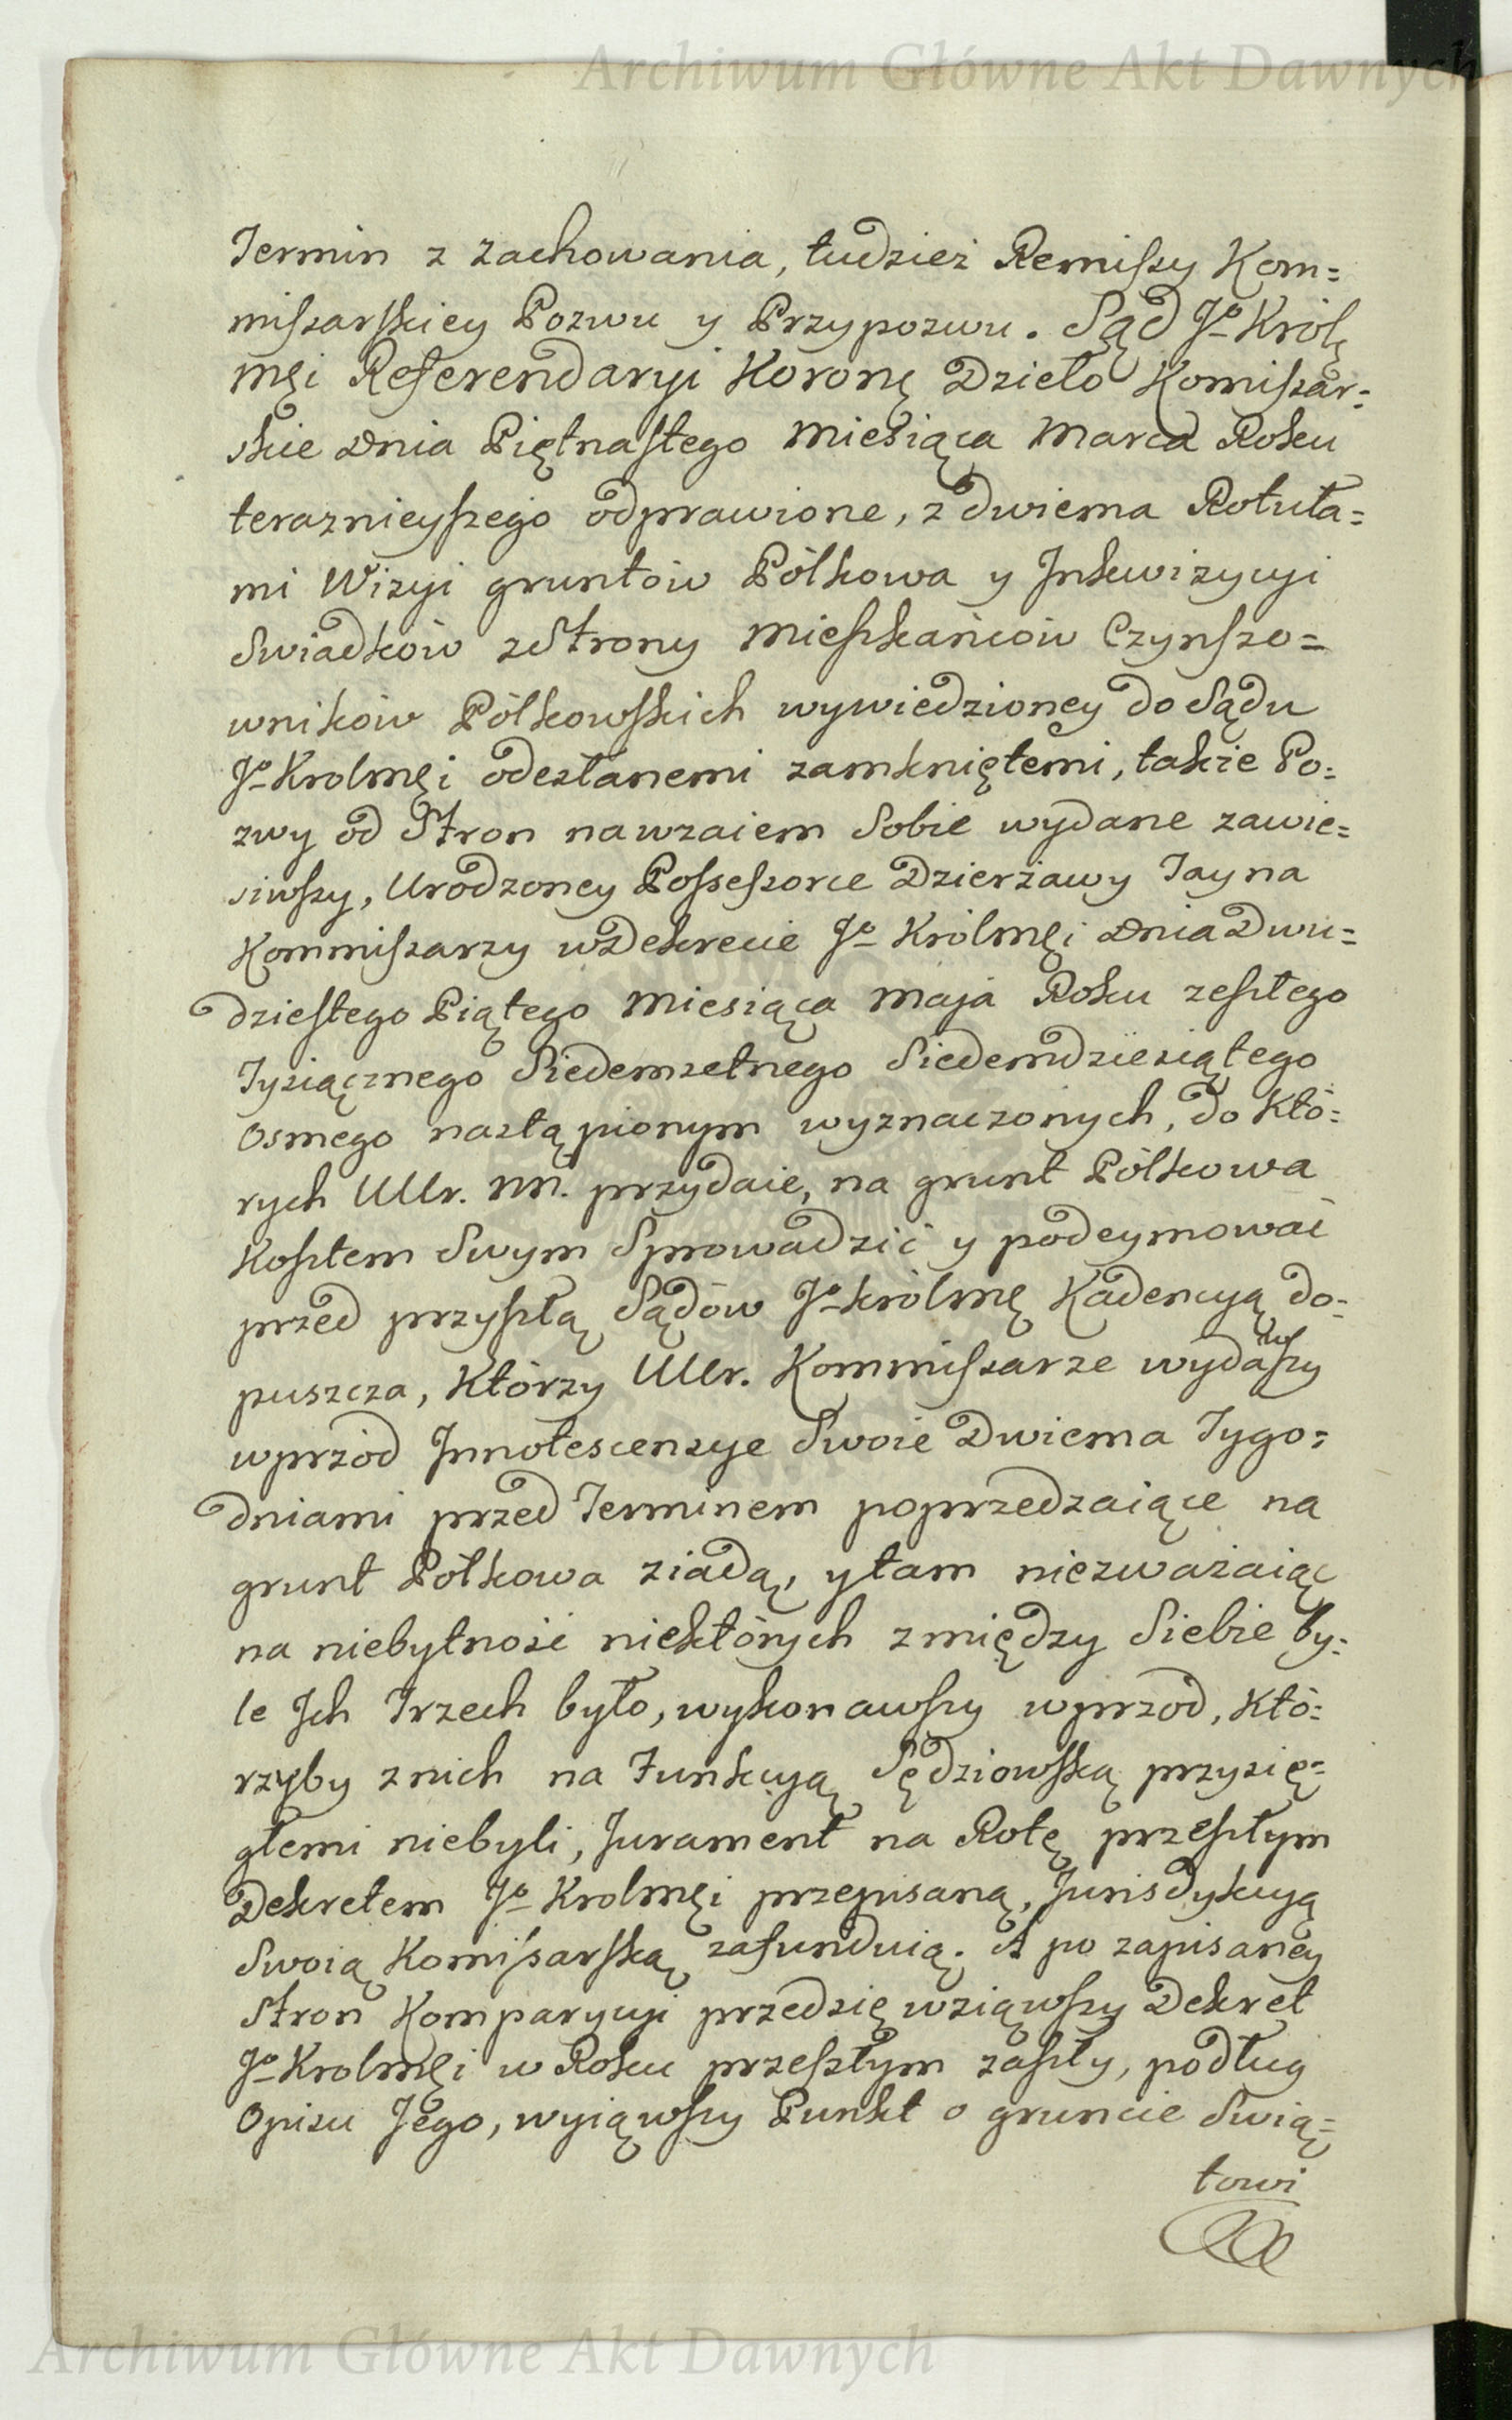 Archiwum Główne Akt Dawnych
Termin z zachowania, tudziez Remiſsy Kom=
miſsarſkiey Pozwu y Przypozwu. Sąd Jº Królę
męi Referendaryi Koronę Dzieło Komiſsar=
skie Dnia Piętnaſtego Miesiąca Marca Roku
teraznieyſzego odprawione, z dwiema Rotuła=
mi Wizyi gruntów Pólkowa y Inkwizycyi
Swiadków z Strony Mieſzkańców Czynszo=
wników Pólkowſkich wywiedzioney do Sądu
Jº Krolmęi odesłanemi zamkniętemi, także Po=
zwy od Stron nawzaiem Sobie wydane zawie=
siwſzy, Urodzoney Poſseſsorce Dzierżawy Jayna
Kommiſsarzy w Dekrecie Jº Królmęi Dnia Dwu=
dzieſtego Piątego Miesiąca Maja Roku zeſzłego
Tysiącznego Siedemsetnego Siedemdziesiątego
Osmego nastąpionym wyznaczonych, do Któ=
rych Ullr. NN. przydaie, na grunt Pólkowa
Koſztem Swym Sprowadzić y podeymować
przed przyſzłą Sądów Jº Królmę Kadencyą do=
puszcza, Którzy Ullr. Kommiſsarze wydawſzy
wprzód Innotescencye Swoie Dwiema Tygo=
dniami przed Terminem poprzedzaiące na
grunt Pólkowa ziadą, y tam niezważaiąc
na niebytność niektórych z między Siebie by=
le Ich Trzech było, wykonawſzy wprzod, Któ=
rzyby z nich na Funkcyą Sędziowſką przysię=
głemi niebyli, Jurament na Rotę przeſzłym
Dekretem Jº Krolmęi przepisaną, Jurisdykcyą
Swoią Komiſsarſką zafunduią. A po zapisaney
Stron Komparycyi przedsięwziąwſzy Dekret
Jº Krolmęi w Roku przeſzłym zaſzły, podług
Opisu Jego, wyiąwſzy Punkt o gruncie Swią=
towi
Archiwum Główne Akt Dawnych